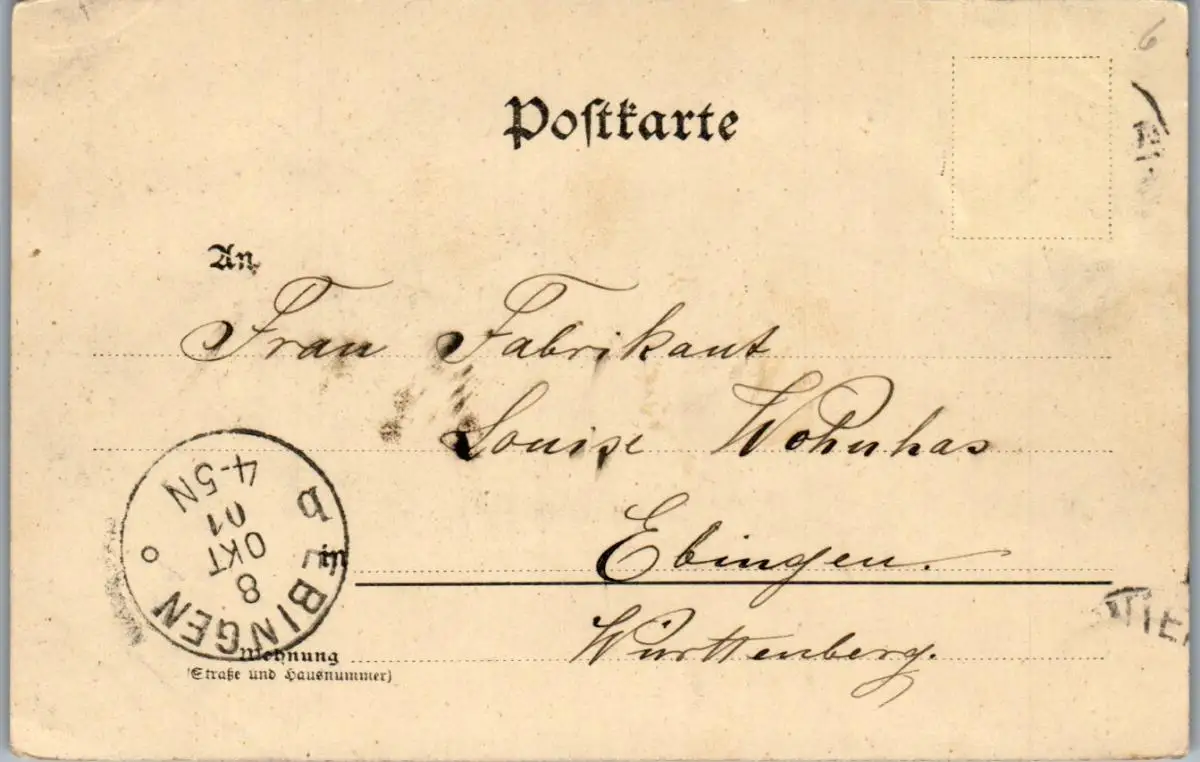 6
Postkarte
An
Frau Fabrikant
Louise Wohnhas
in Ebingen.
Württemberg.
Wohnung
(Straße und Hausnummer)
EBINGEN
8
OKT
01
4-5N